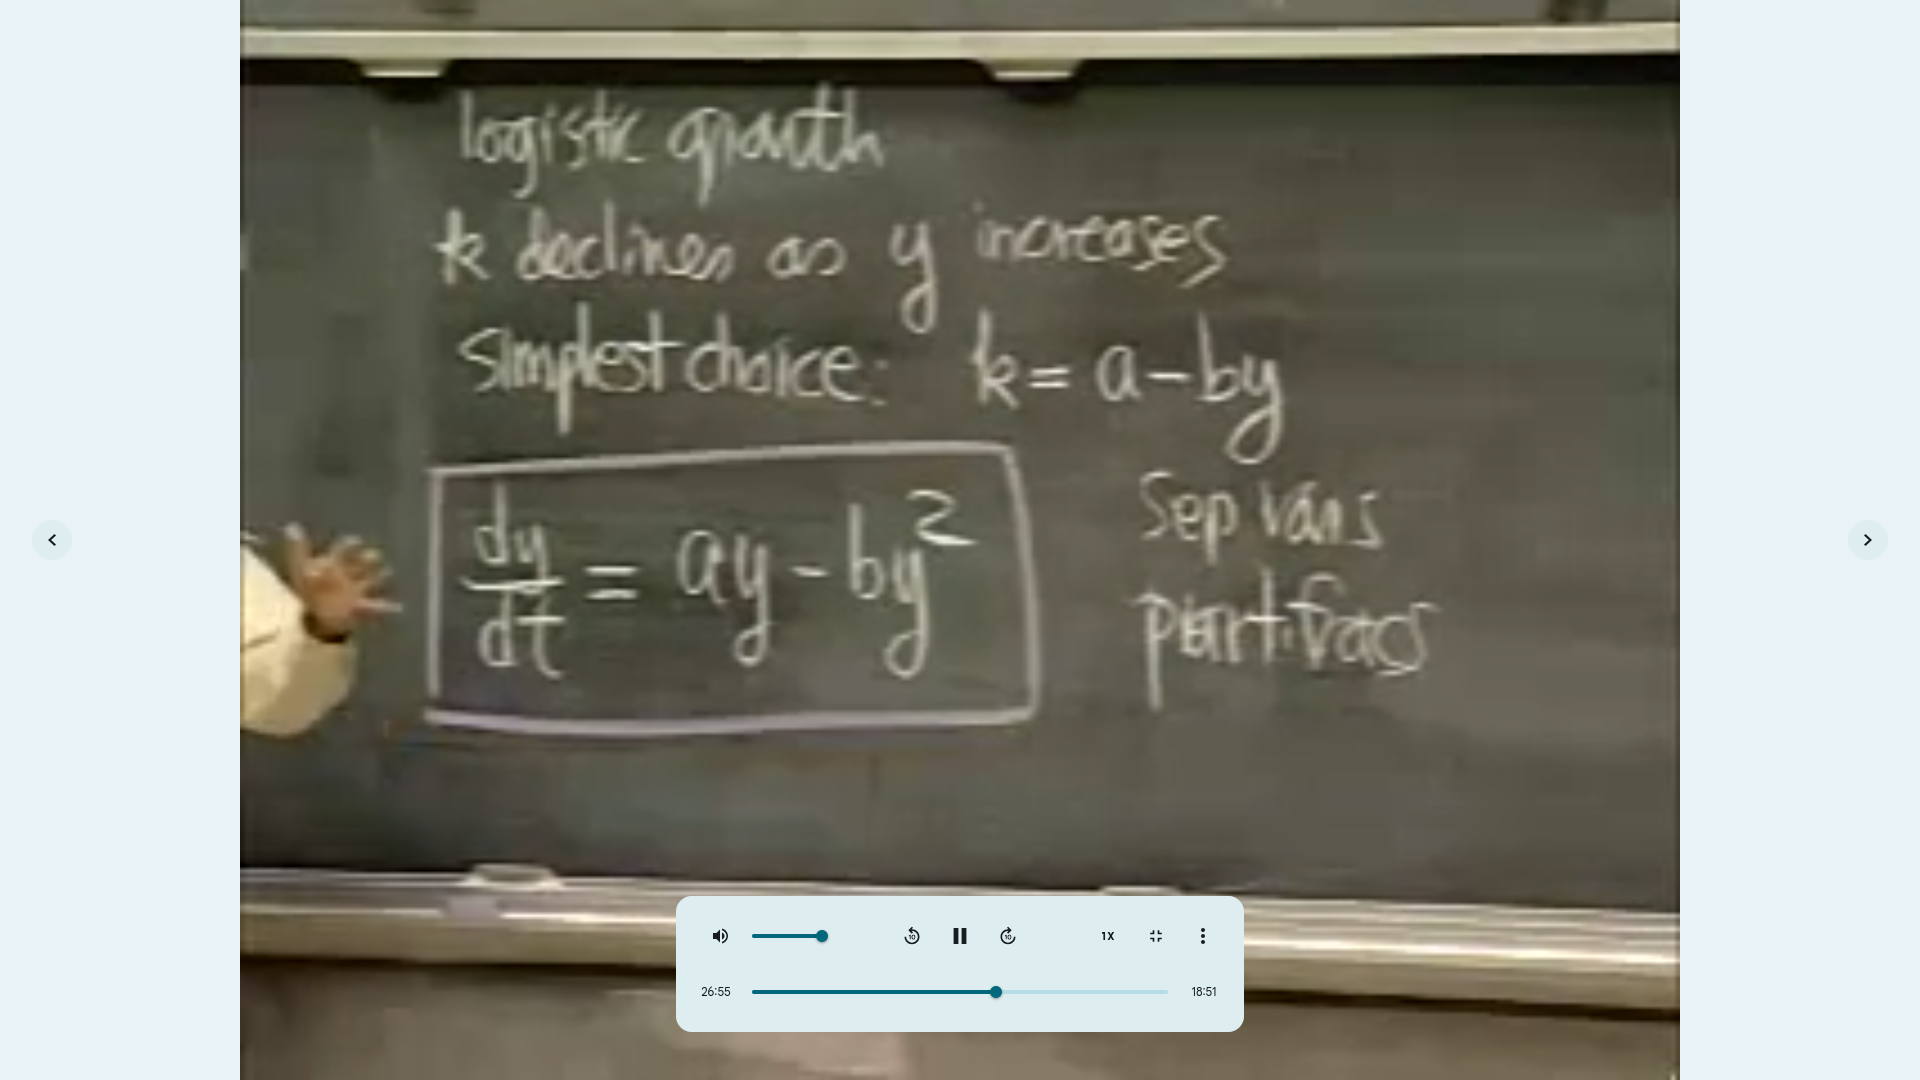 logistic growth
k declines as y increases
simplest choice: k = a - by
dy/dt = ay - by²
Sep vars
part. fracs
10
10
1X
26:55
18:51